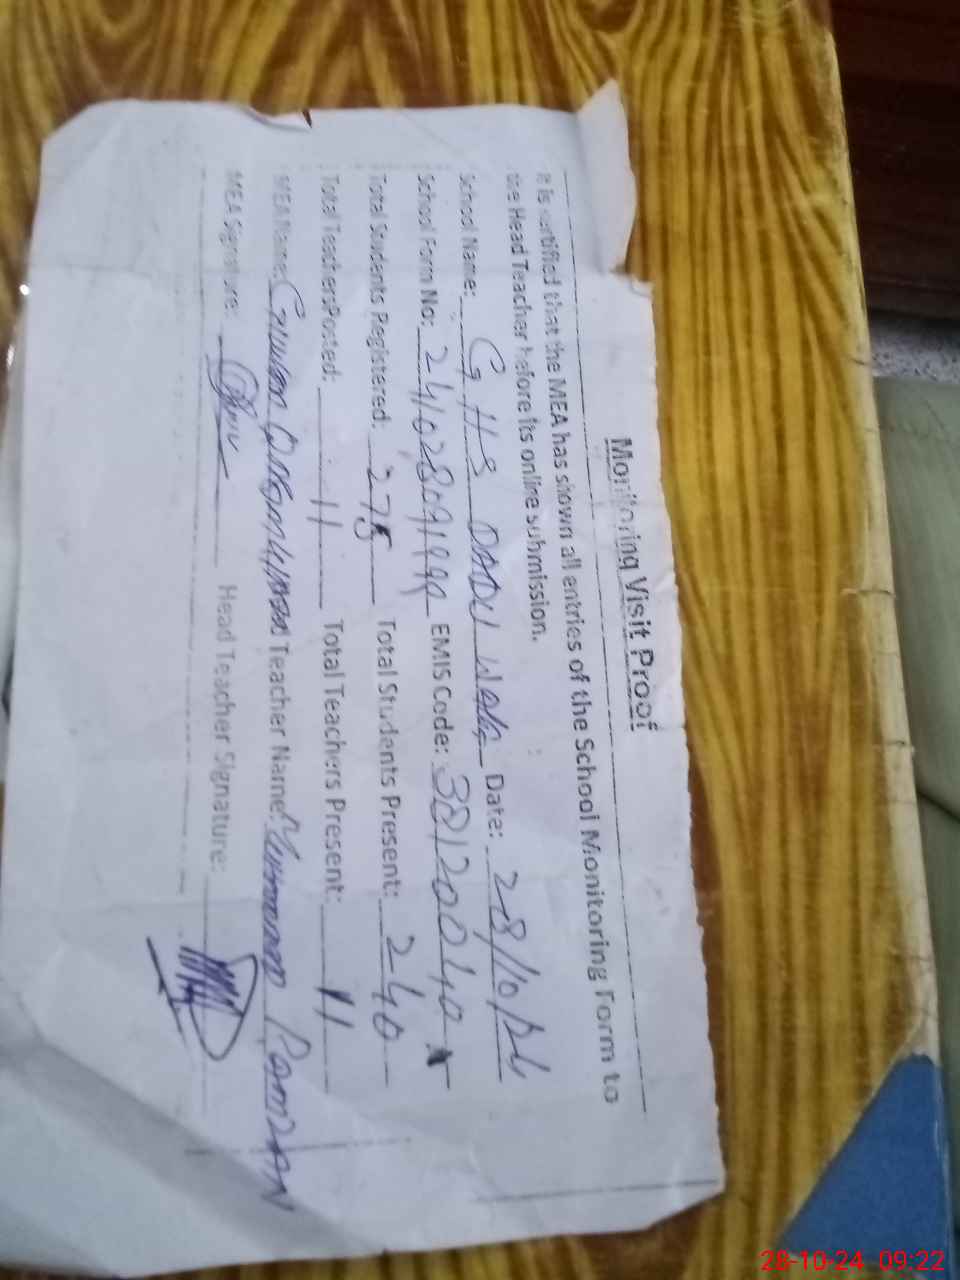 Monitoring Visit Proof
It is certified that the MEA has shown all entries of the School Monitoring Form to
the Head Teacher before its online submission.
School Name: GHS DADU Wala Date: 28/10/24
School Form No: EMIS Code:
Total Students Registered: 275 Total Students Present: 240
Total TeachersPosted: 11 Total Teachers Present: 11
MEA Name: Teacher Name: Muhammad Ramzan
MEA Signature: Head Teacher Signature:
28-10-24 09:22